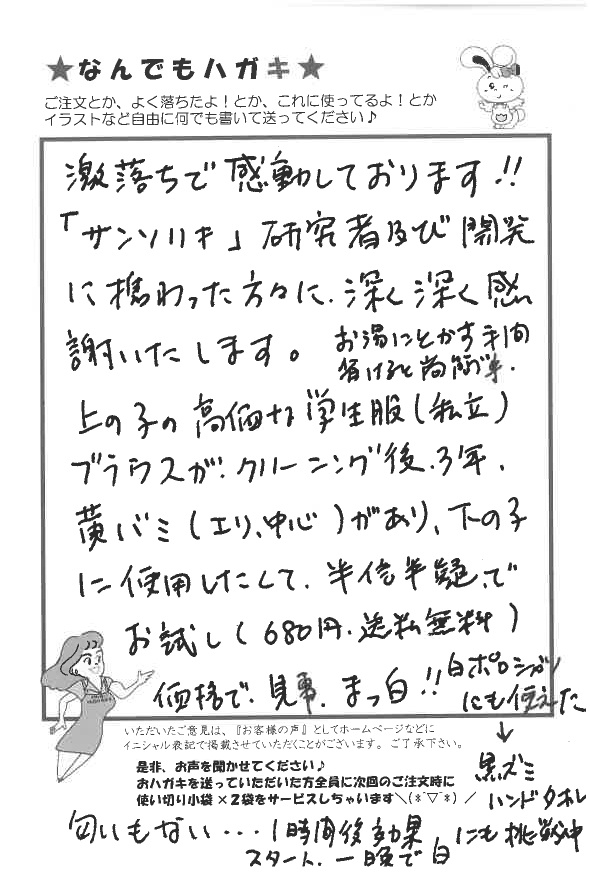 ★なんでもハガキ★
ご注文とか、よく落ちたよ！とか、これに使ってるよ！とか
イラストなど自由に何でも書いて送ってください♪
激落ちで感動しております!!
「サンソリキ」研究者及び開発
に携わった方々に、深く深く感
謝いたします。
お湯にとかす手間
省けると尚簡単.
上の子の高価な学生服(私立)
ブラウスが、クリーニング後、3年、
黄バミ(エリ、中心)があり、下の子
に使用したくて、半信半疑、で
お試し(680円、送料無料)
価格で、見事、まっ白!!
白ポロシャツ
にも使えた
↓
黒ズミ
ハンドタオル
にも挑戦中
いただいたご意見は、『お客様の声』としてホームページなどに
イニシャル表記で掲載させていただくことがございます。ご了承下さい。
是非、お声を聞かせてください♪
おハガキを送っていただいた方全員に次回のご注文時に
使い切り小袋×2袋をサービスしちゃいます＼(*´▽`*)／
匂いもない・・・1時間後効果
スタート、一晩で白